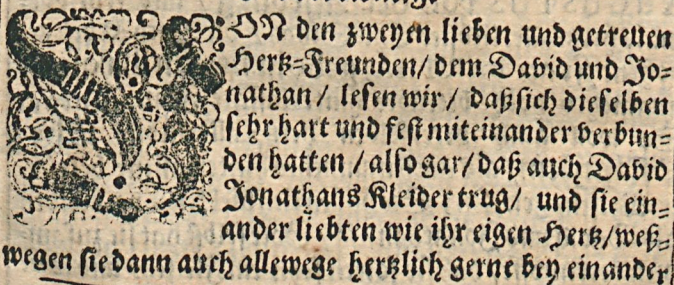 VON den zweyen lieben und getreuen
Hertz=Freunden/ dem David und Jo=
nathan / lesen wir / daß sich dieselben
sehr hart und fest miteinander verbun=
den hatten / also gar/ daß auch David
Jonathans Kleider trug/ und sie ein=
ander liebten wie ihr eigen Hertz/ weß=
wegen sie dann auch allewege hertzlich gerne bey einander